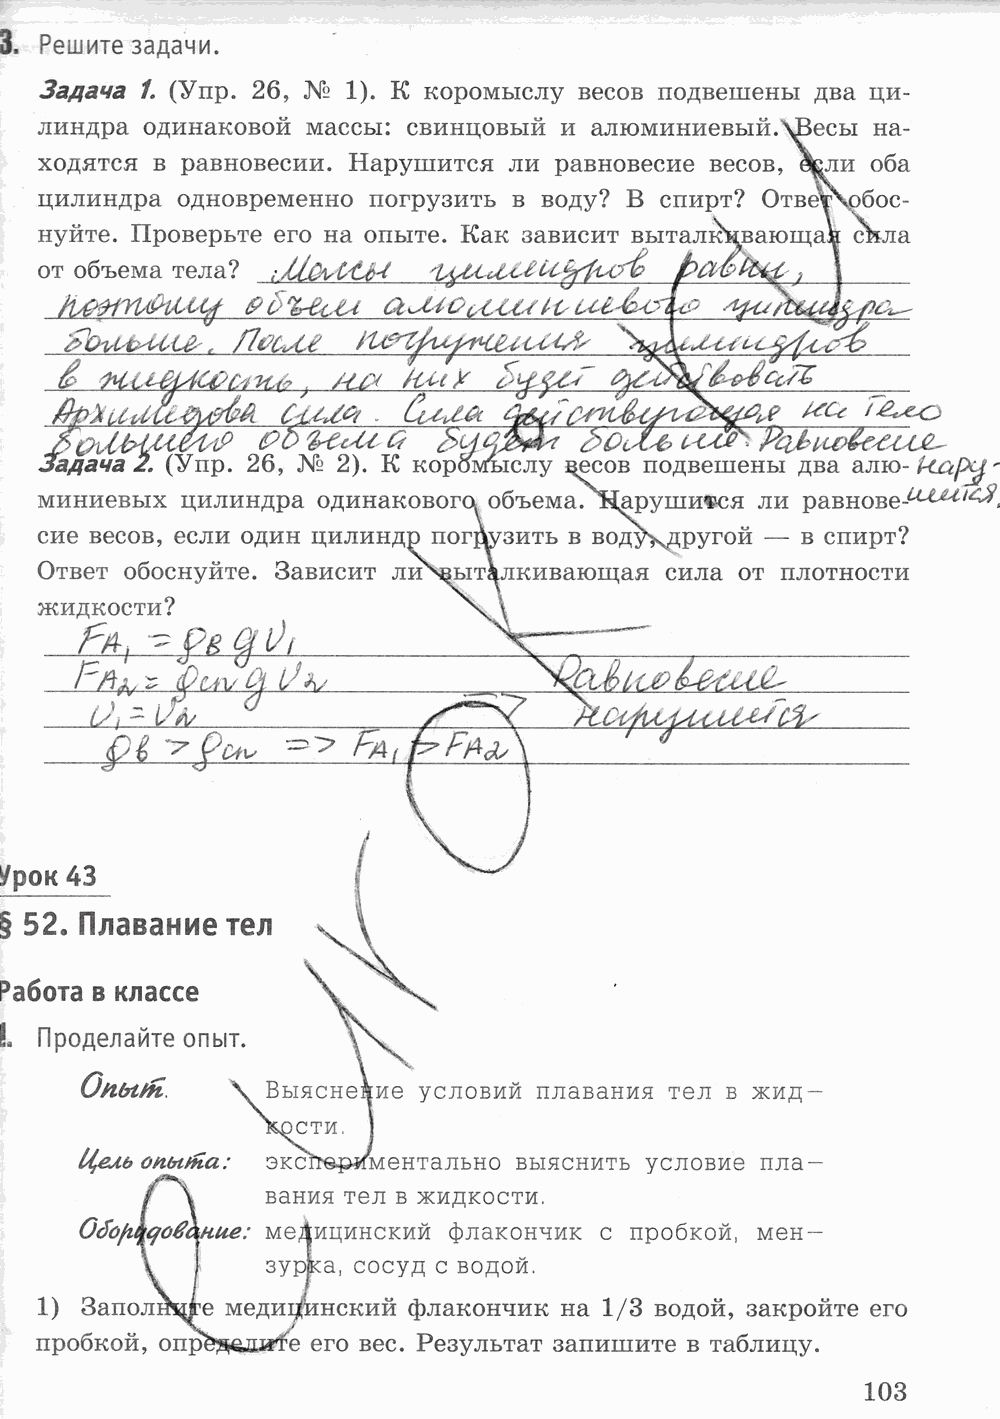 3. Решите задачи.
Задача 1. (Упр. 26, № 1). К коромыслу весов подвешены два ци-
линдра одинаковой массы: свинцовый и алюминиевый. Весы на-
ходятся в равновесии. Нарушится ли равновесие весов, если оба
цилиндра одновременно погрузить в воду? В спирт? Ответ обос-
нуйте. Проверьте его на опыте. Как зависит выталкивающая сила
от объема тела? Массы цилиндров равны,
поэтому объем алюминиевого цилиндра
больше. После погружения цилиндров
в жидкость, на них будет действовать
Архимедова сила. Сила действующая на тело
большего объема будет больше. Равновесие
нару-
шится.
Задача 2. (Упр. 26, № 2). К коромыслу весов подвешены два алю-
миниевых цилиндра одинакового объема. Нарушится ли равнове-
сие весов, если один цилиндр погрузить в воду, другой — в спирт?
Ответ обоснуйте. Зависит ли выталкивающая сила от плотности
жидкости?
FA1 = ρв g V1
FA2 = ρсп g V2 Равновесие
V1 = V2 => нарушится
ρв > ρсп => FA1 > FA2
Урок 43
§ 52. Плавание тел
Работа в классе
1. Проделайте опыт.
Опыт. Выяснение условий плавания тел в жид-
кости.
Цель опыта: экспериментально выяснить условие пла-
вания тел в жидкости.
Оборудование: медицинский флакончик с пробкой, мен-
зурка, сосуд с водой.
1) Заполните медицинский флакончик на 1/3 водой, закройте его
пробкой, определите его вес. Результат запишите в таблицу.
103